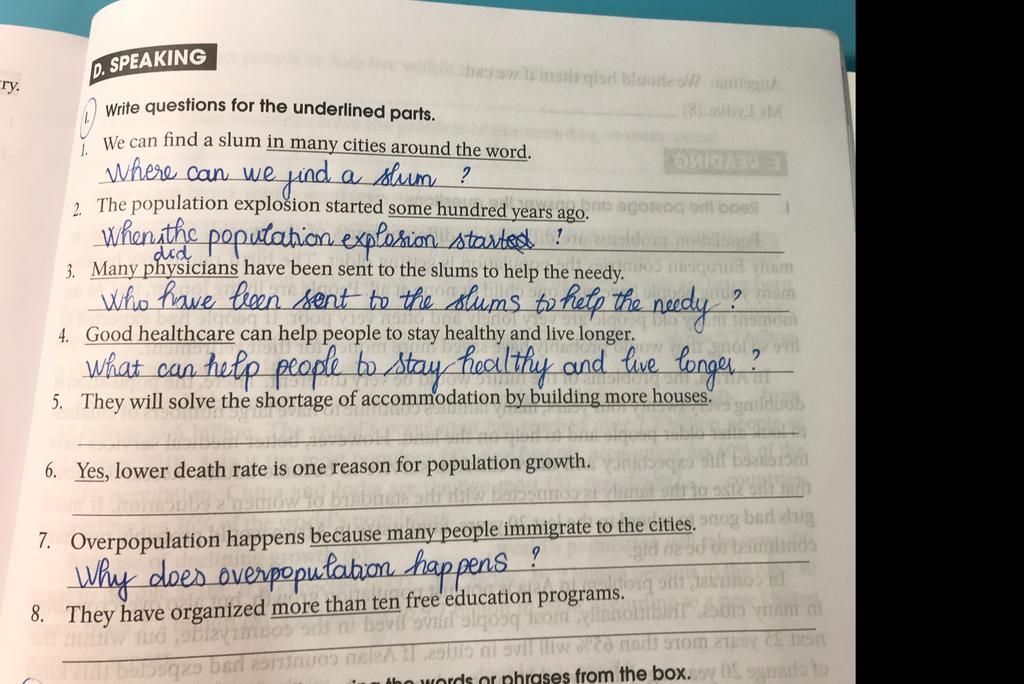 ry.
D. SPEAKING
1. Write questions for the underlined parts.
1. We can find a slum in many cities around the word.
Where can we find a slum ?
2. The population explosion started some hundred years ago.
When the population explosion started ?
did
3. Many physicians have been sent to the slums to help the needy.
Who have been sent to the slums to help the needy ?
4. Good healthcare can help people to stay healthy and live longer.
What can help people to stay healthy and live longer ?
5. They will solve the shortage of accommodation by building more houses.
6. Yes, lower death rate is one reason for population growth.
7. Overpopulation happens because many people immigrate to the cities.
Why does overpopulation happens ?
8. They have organized more than ten free education programs.
the words or phrases from the box.